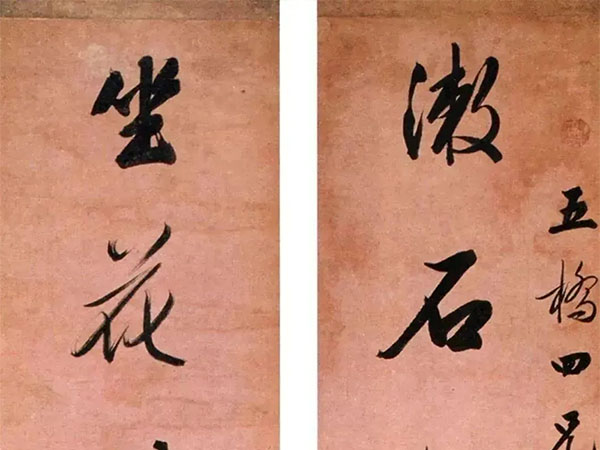 五橋四兄
漱石
坐花